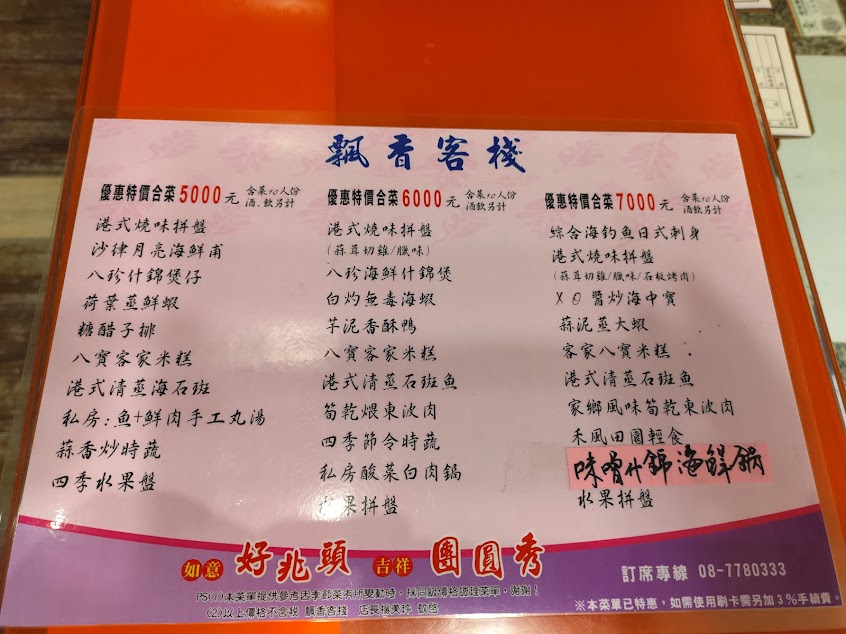 飄香客棧
優惠特價合菜5000元 含菜10人份
酒.飲另計
港式燒味拼盤
沙律月亮海鮮甫
八珍什錦煲仔
荷葉蒸鮮蝦
糖醋子排
八寶客家米糕
港式清蒸海石斑
私房:魚+鮮肉手工丸湯
蒜香炒時蔬
四季水果盤
優惠特價合菜6000元 含菜10人份
酒飲另計
港式燒味拼盤
(蒜茸切雞/臘味)
八珍海鮮什錦煲
白灼無毒海蝦
芋泥香酥鴨
八寶客家米糕
港式清蒸石斑魚
筍乾煨東波肉
四季節令時蔬
私房酸菜白肉鍋
水果拼盤
優惠特價合菜7000元 含菜10人份
酒飲另計
綜合海釣魚日式刺身
港式燒味拼盤
(蒜茸切雞/臘味/石板烤肉)
XO醬炒海中寶
蒜泥蒸大蝦
客家八寶米糕.
港式清蒸石斑魚
家鄉風味筍乾東波肉
禾風田園輕食
味噌什錦海鮮鍋
水果拼盤
如意 好兆頭 吉祥 團圓秀
PS(1)本菜單提供參考因季節菜共所變動時，採同級價格調理菜單，謝謝！
(2)以上價格不含稅 飄香客棧 店長 敬啓
訂席專線 08-7780333
※本菜單已特惠，如需使用刷卡需另加3%手續費。